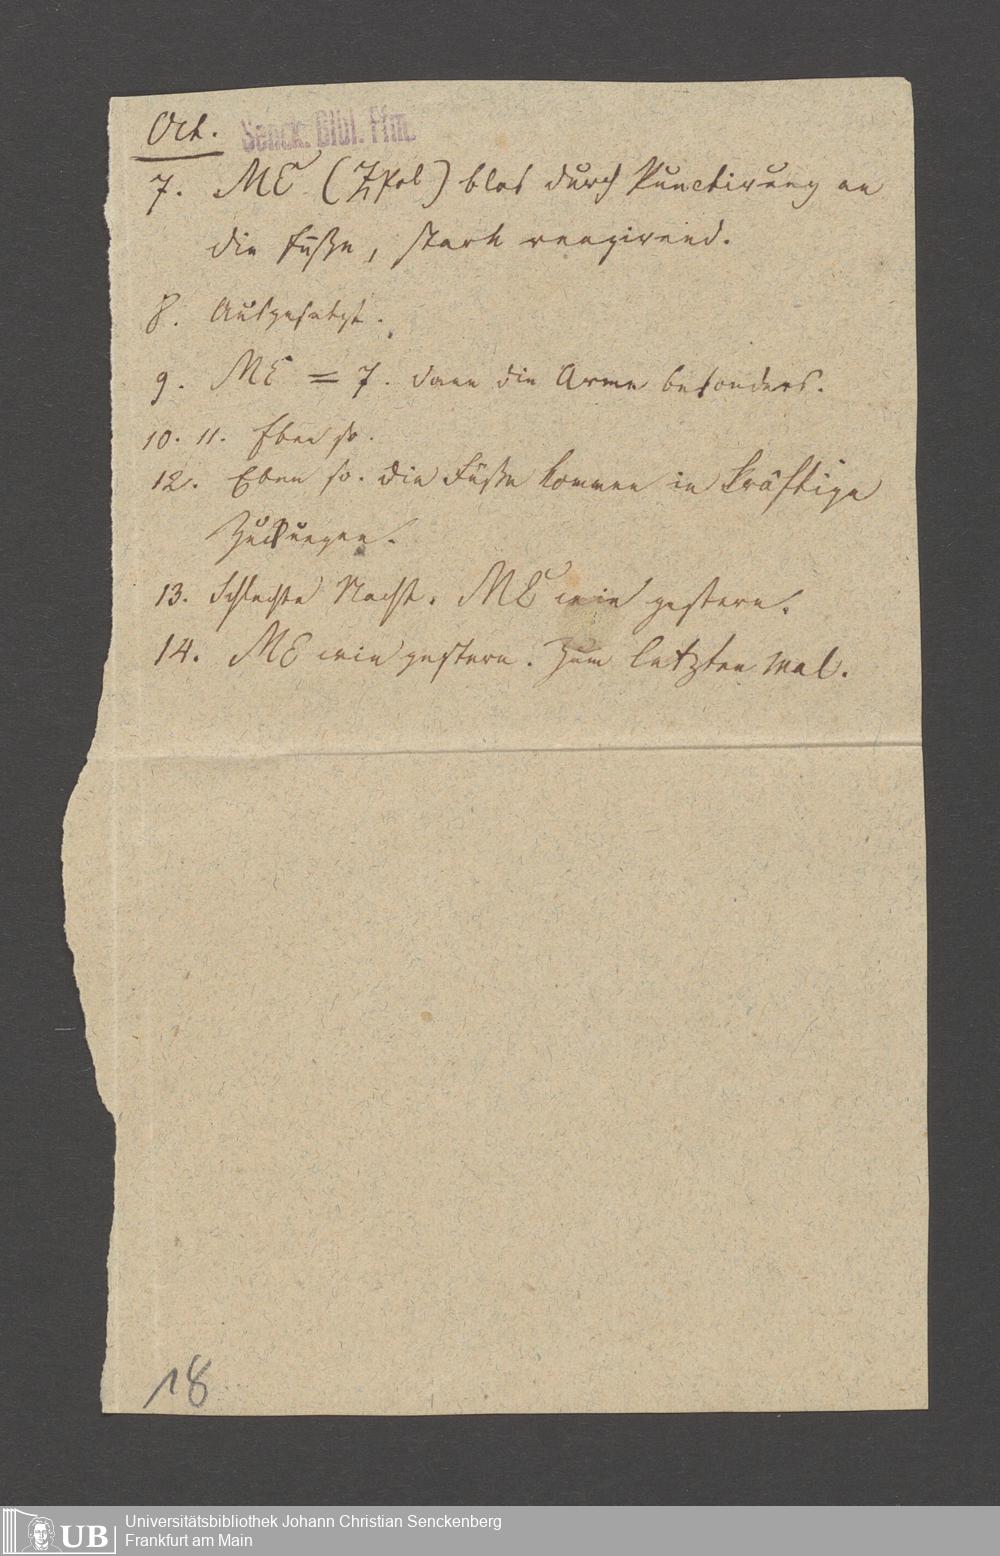 Oct.
Senck. Bibl. Ffm.
7. ME (Zpol) blos durch Punctirung an
die Füße, stark reagirend.
8. Ausgesetzt.
9. ME = 7. dann die Arme besonders.
10. 11. Eben so.
12. Eben so. die Füße kommen in kräftige
Zuckungen.
13. Schlechte Nacht. ME wie gestern.
14. ME wie gestern. Zum letzten Mal.
18
UB
Universitätsbibliothek Johann Christian Senckenberg
Frankfurt am Main